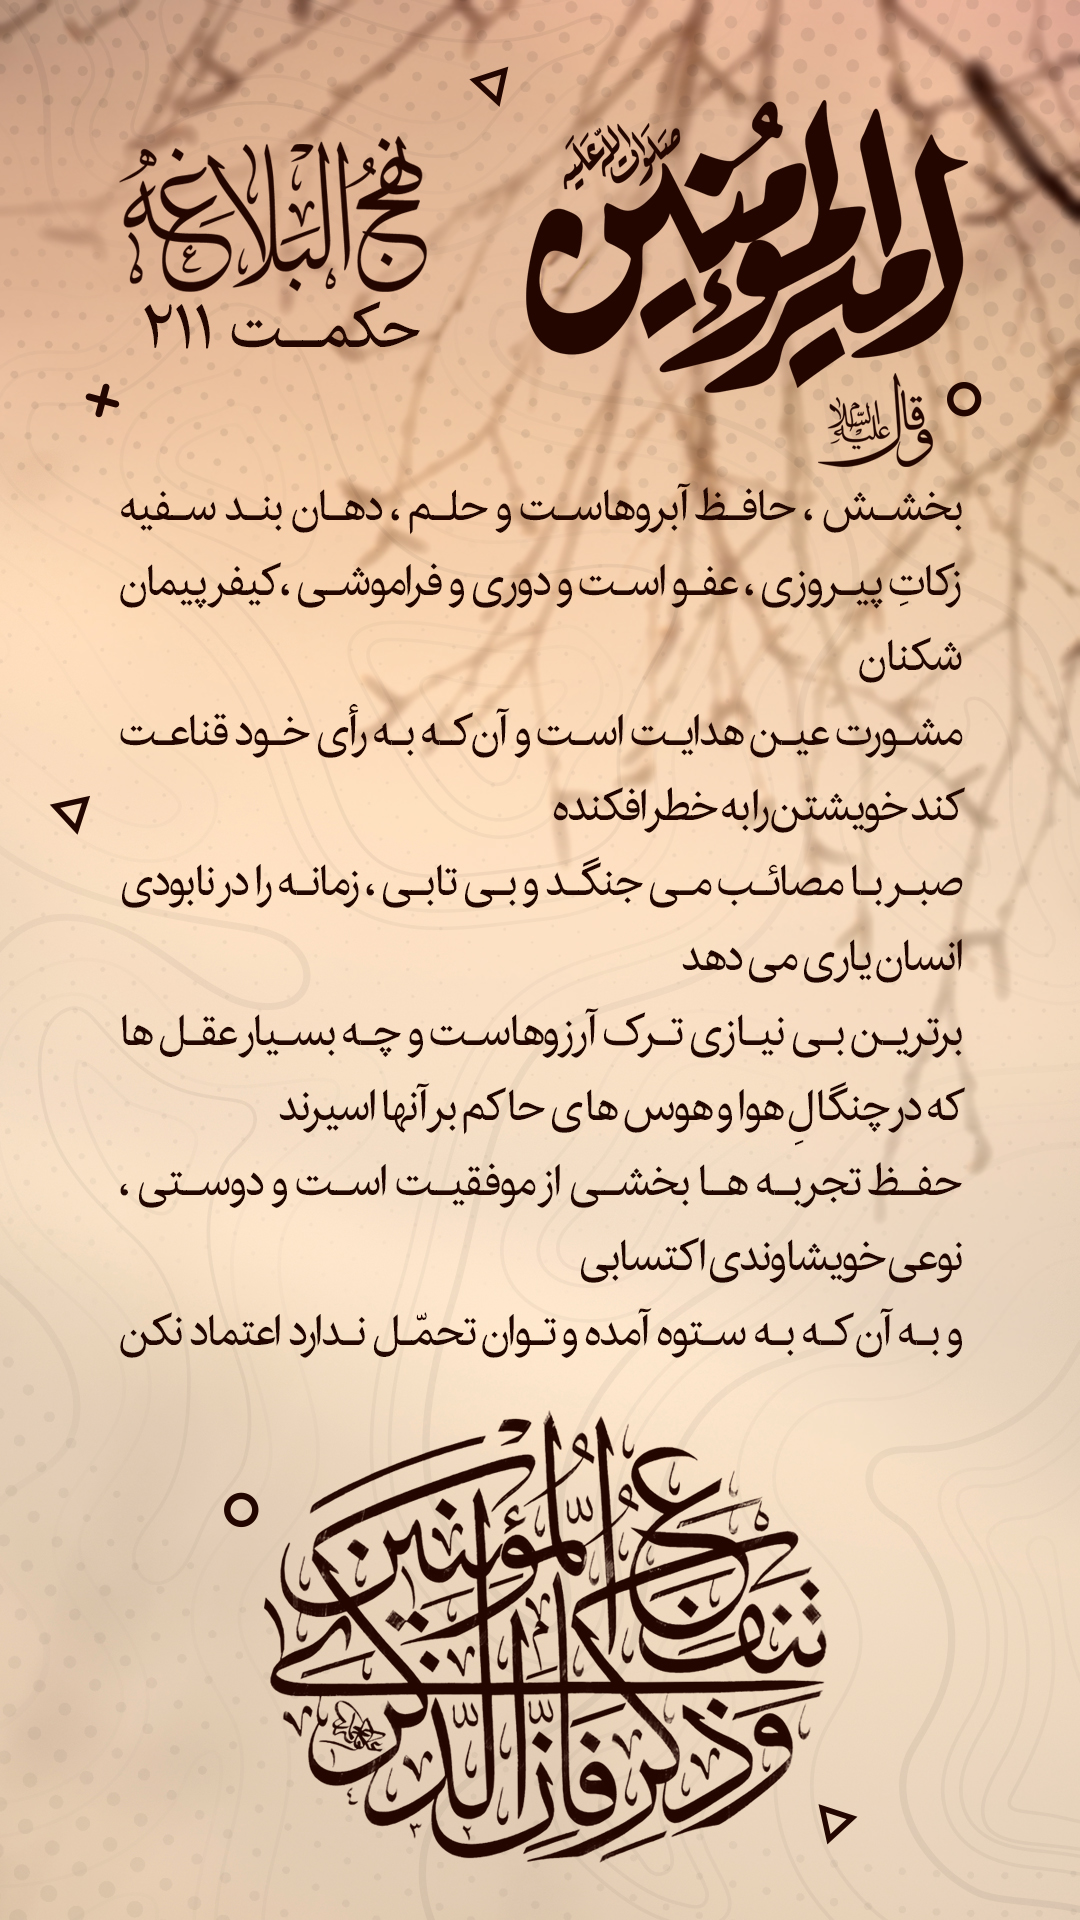 امیرالمؤمنین
صلوات الله علیه
نهج البلاغه
حکمت ۲۱۱
و قال علیه السلام
بخشش ، حافظ آبروهاست و حلم ، دهان بند سفیه
زکاتِ پیروزی ، عفو است و دوری و فراموشی ، کیفر پیمان
شکنان
مشورت عین هدایت است و آن که به رأی خود قناعت
کند خویشتن را به خطر افکنده
صبر با مصائب می جنگد و بی تابی ، زمانه را در نابودی
انسان یاری می دهد
برترین بی نیازی ترک آرزوهاست و چه بسیار عقل ها
که در چنگالِ هوا و هوس های حاکم بر آنها اسیرند
حفظ تجربه ها بخشی از موفقیت است و دوستی ،
نوعی خویشاوندی اکتسابی
و به آن که به ستوه آمده و توان تحمّل ندارد اعتماد نکن
وَذَكِّر فَإِنَّ الذِّكرىٰ
تَنفَعُ المُؤمِنينَ